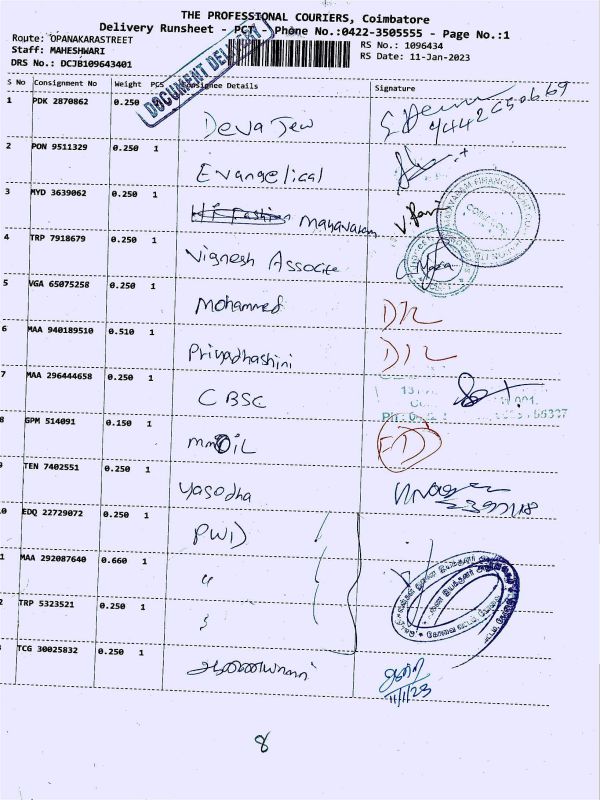 THE PROFESSIONAL COURIERS, Coimbatore
Delivery Runsheet - PCT - Phone No.:0422-3505555 - Page No.:1
Route: OPANAKARASTREET
RS No.: 1096434
Staff: MAHESHWARI
RS Date: 11-Jan-2023
DRS No.: DCJB109643401
DOCUMENT DELIVERY
S No Consignment No Weight PCS Consignee Details Signature
1 PDK 2870862 0.250 Deva Jew
2 PON 9511329 0.250 1 Evangelical
3 MYD 3639062 0.250 1 Hi Fashion Mahavaram V. Pavi
4 TRP 7918679 0.250 1 Vignesh Associte
5 VGA 65075258 0.250 1 Mohammed D/L
6 MAA 940189510 0.510 1 Priyadhashini D/L
7 MAA 296444658 0.250 1 C BSC
8 GPM 514091 0.150 1 mmOiL
9 TEN 7402551 0.250 1 yasodha
10 EDQ 22729072 0.250 1 PWD
11 MAA 292087640 0.660 1 "
12 TRP 5323521 0.250 1
13 TCG 30025832 0.250 1
11/1/23
8